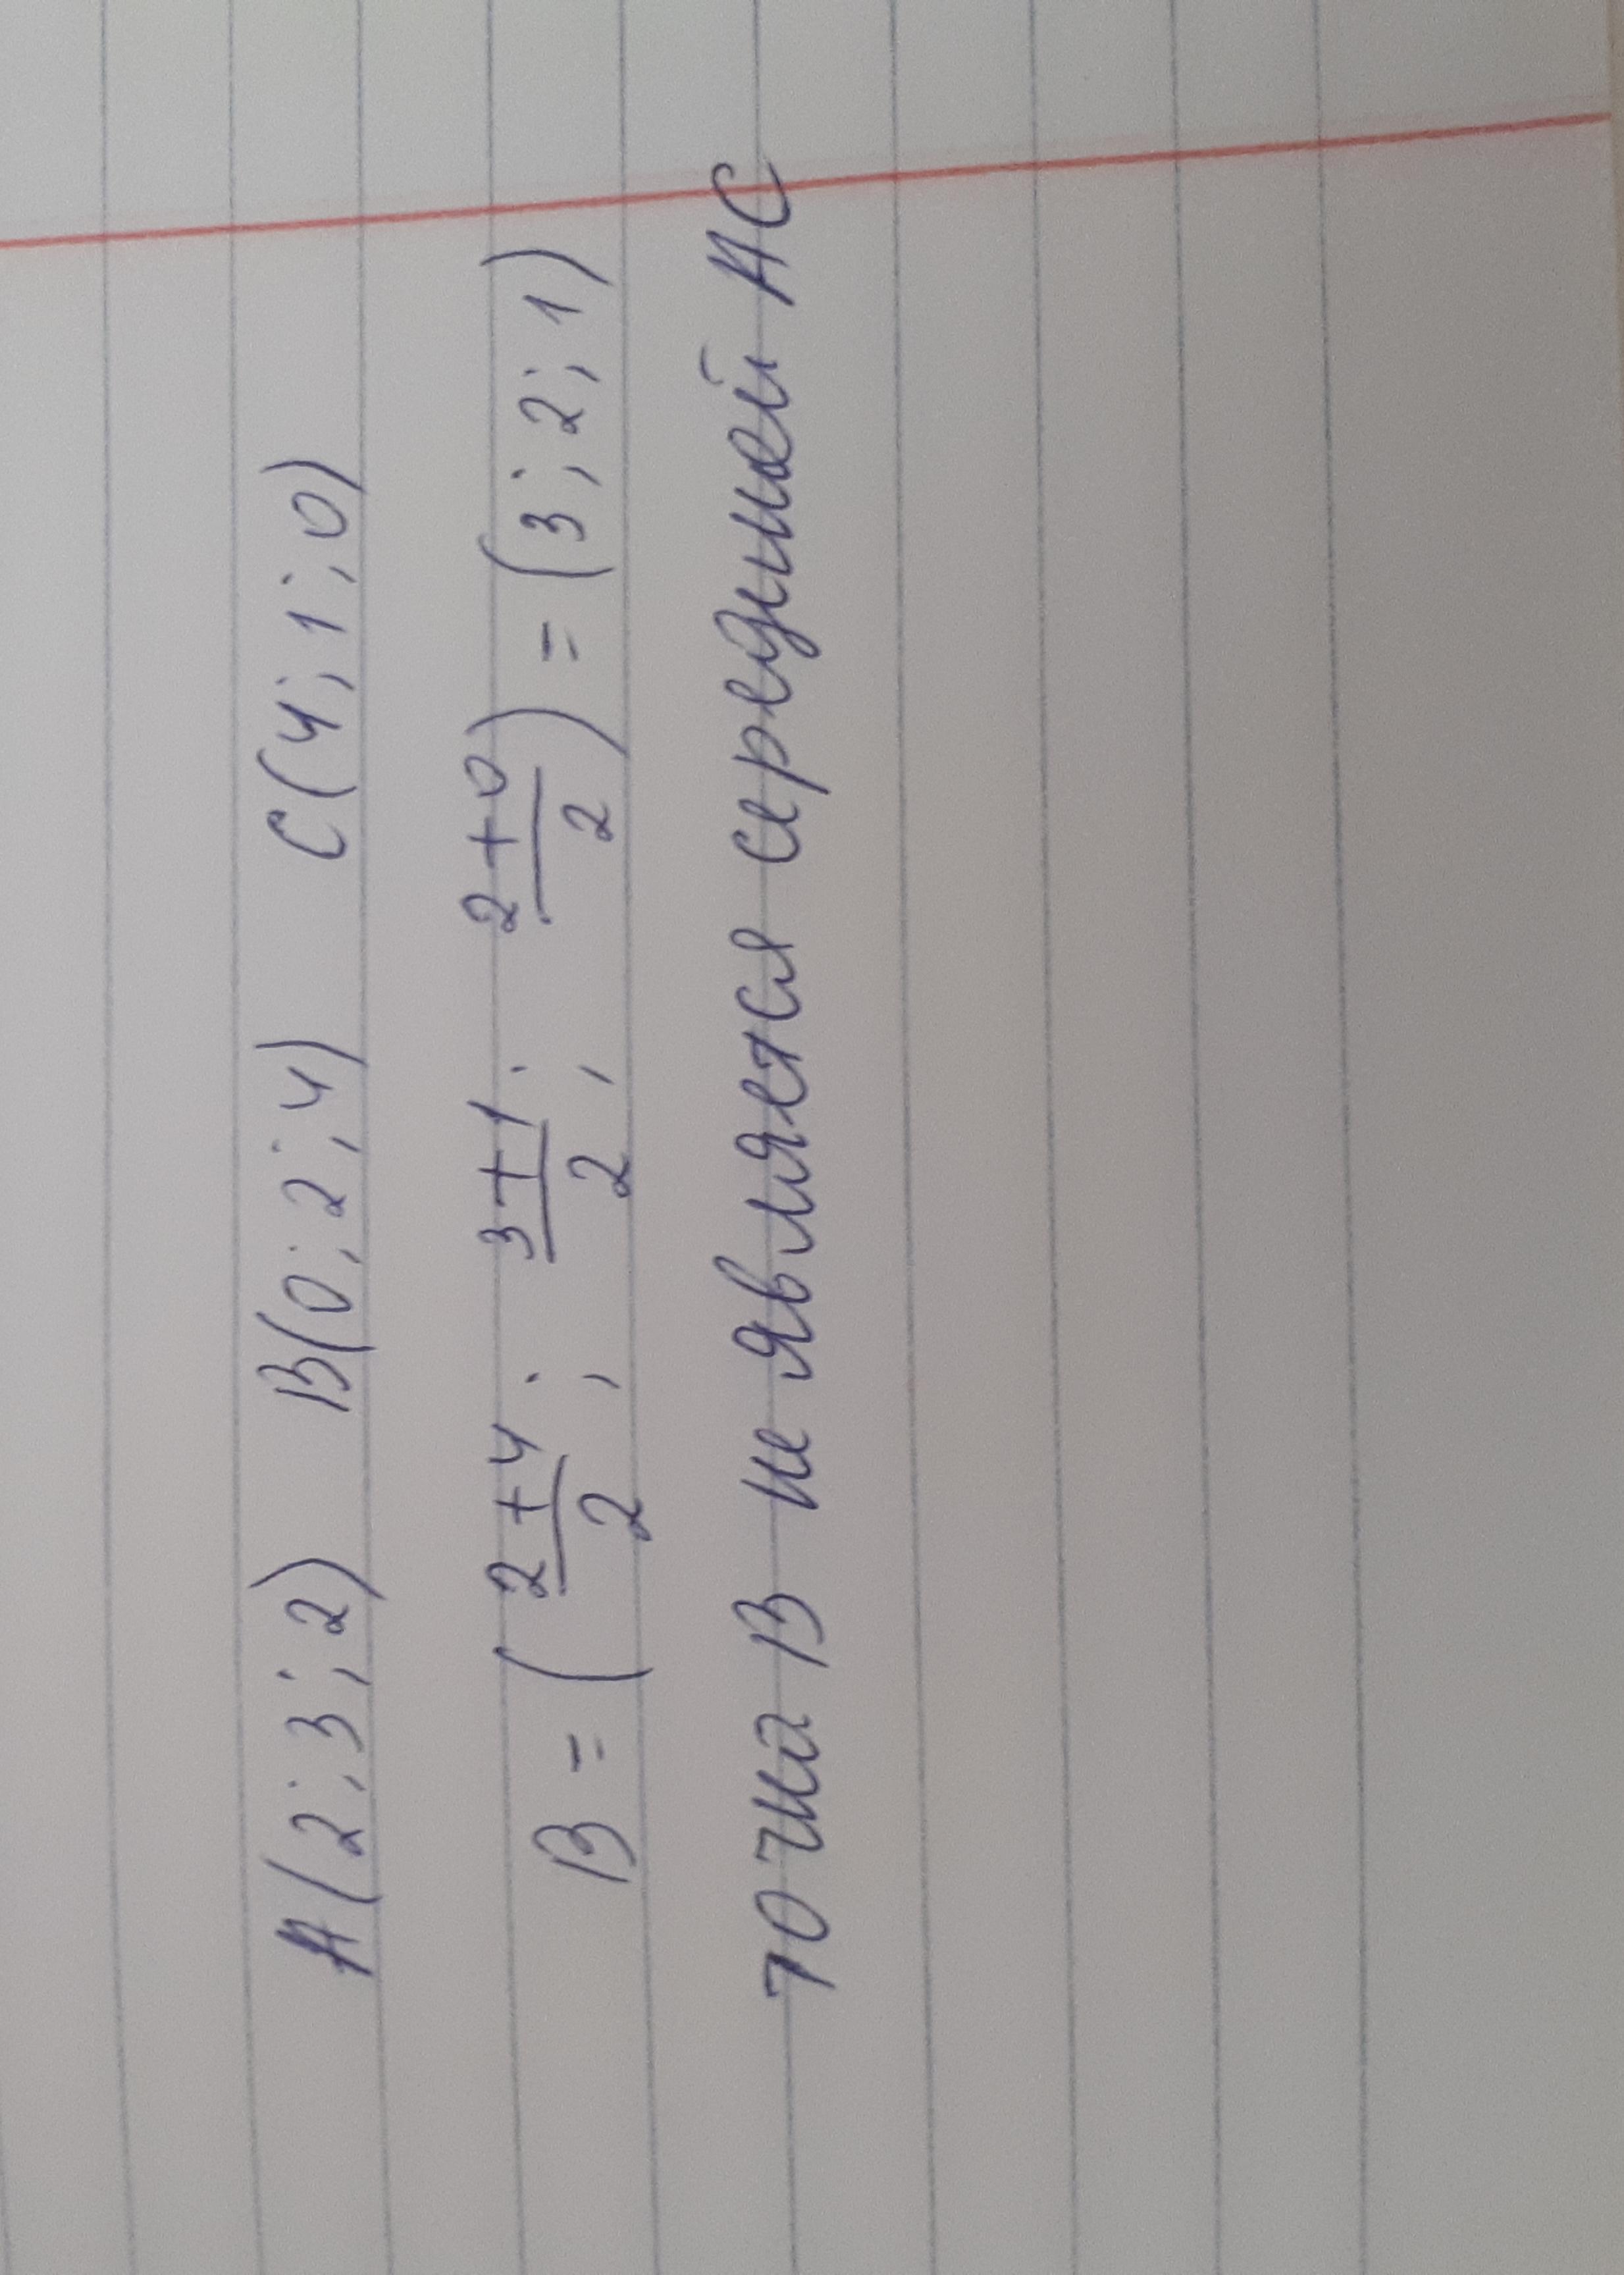 A(2;3;2) B(0;2;4) C(4;1;0)
B = (2+4/2; 3+1/2; 2+0/2) = (3;2;1)
точка B не является серединой AC